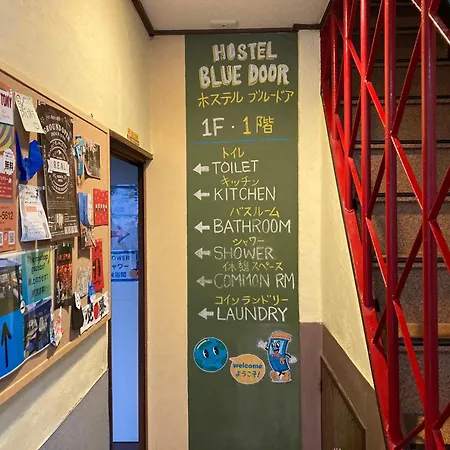 HOSTEL
BLUE DOOR
ホステル ブルードア
1F・1階
トイレ
TOILET
キッチン
KITCHEN
バスルーム
BATHROOM
シャワー
SHOWER
休憩スペース
COMMON RM
コインランドリー
LAUNDRY
welcome
ようこそ!